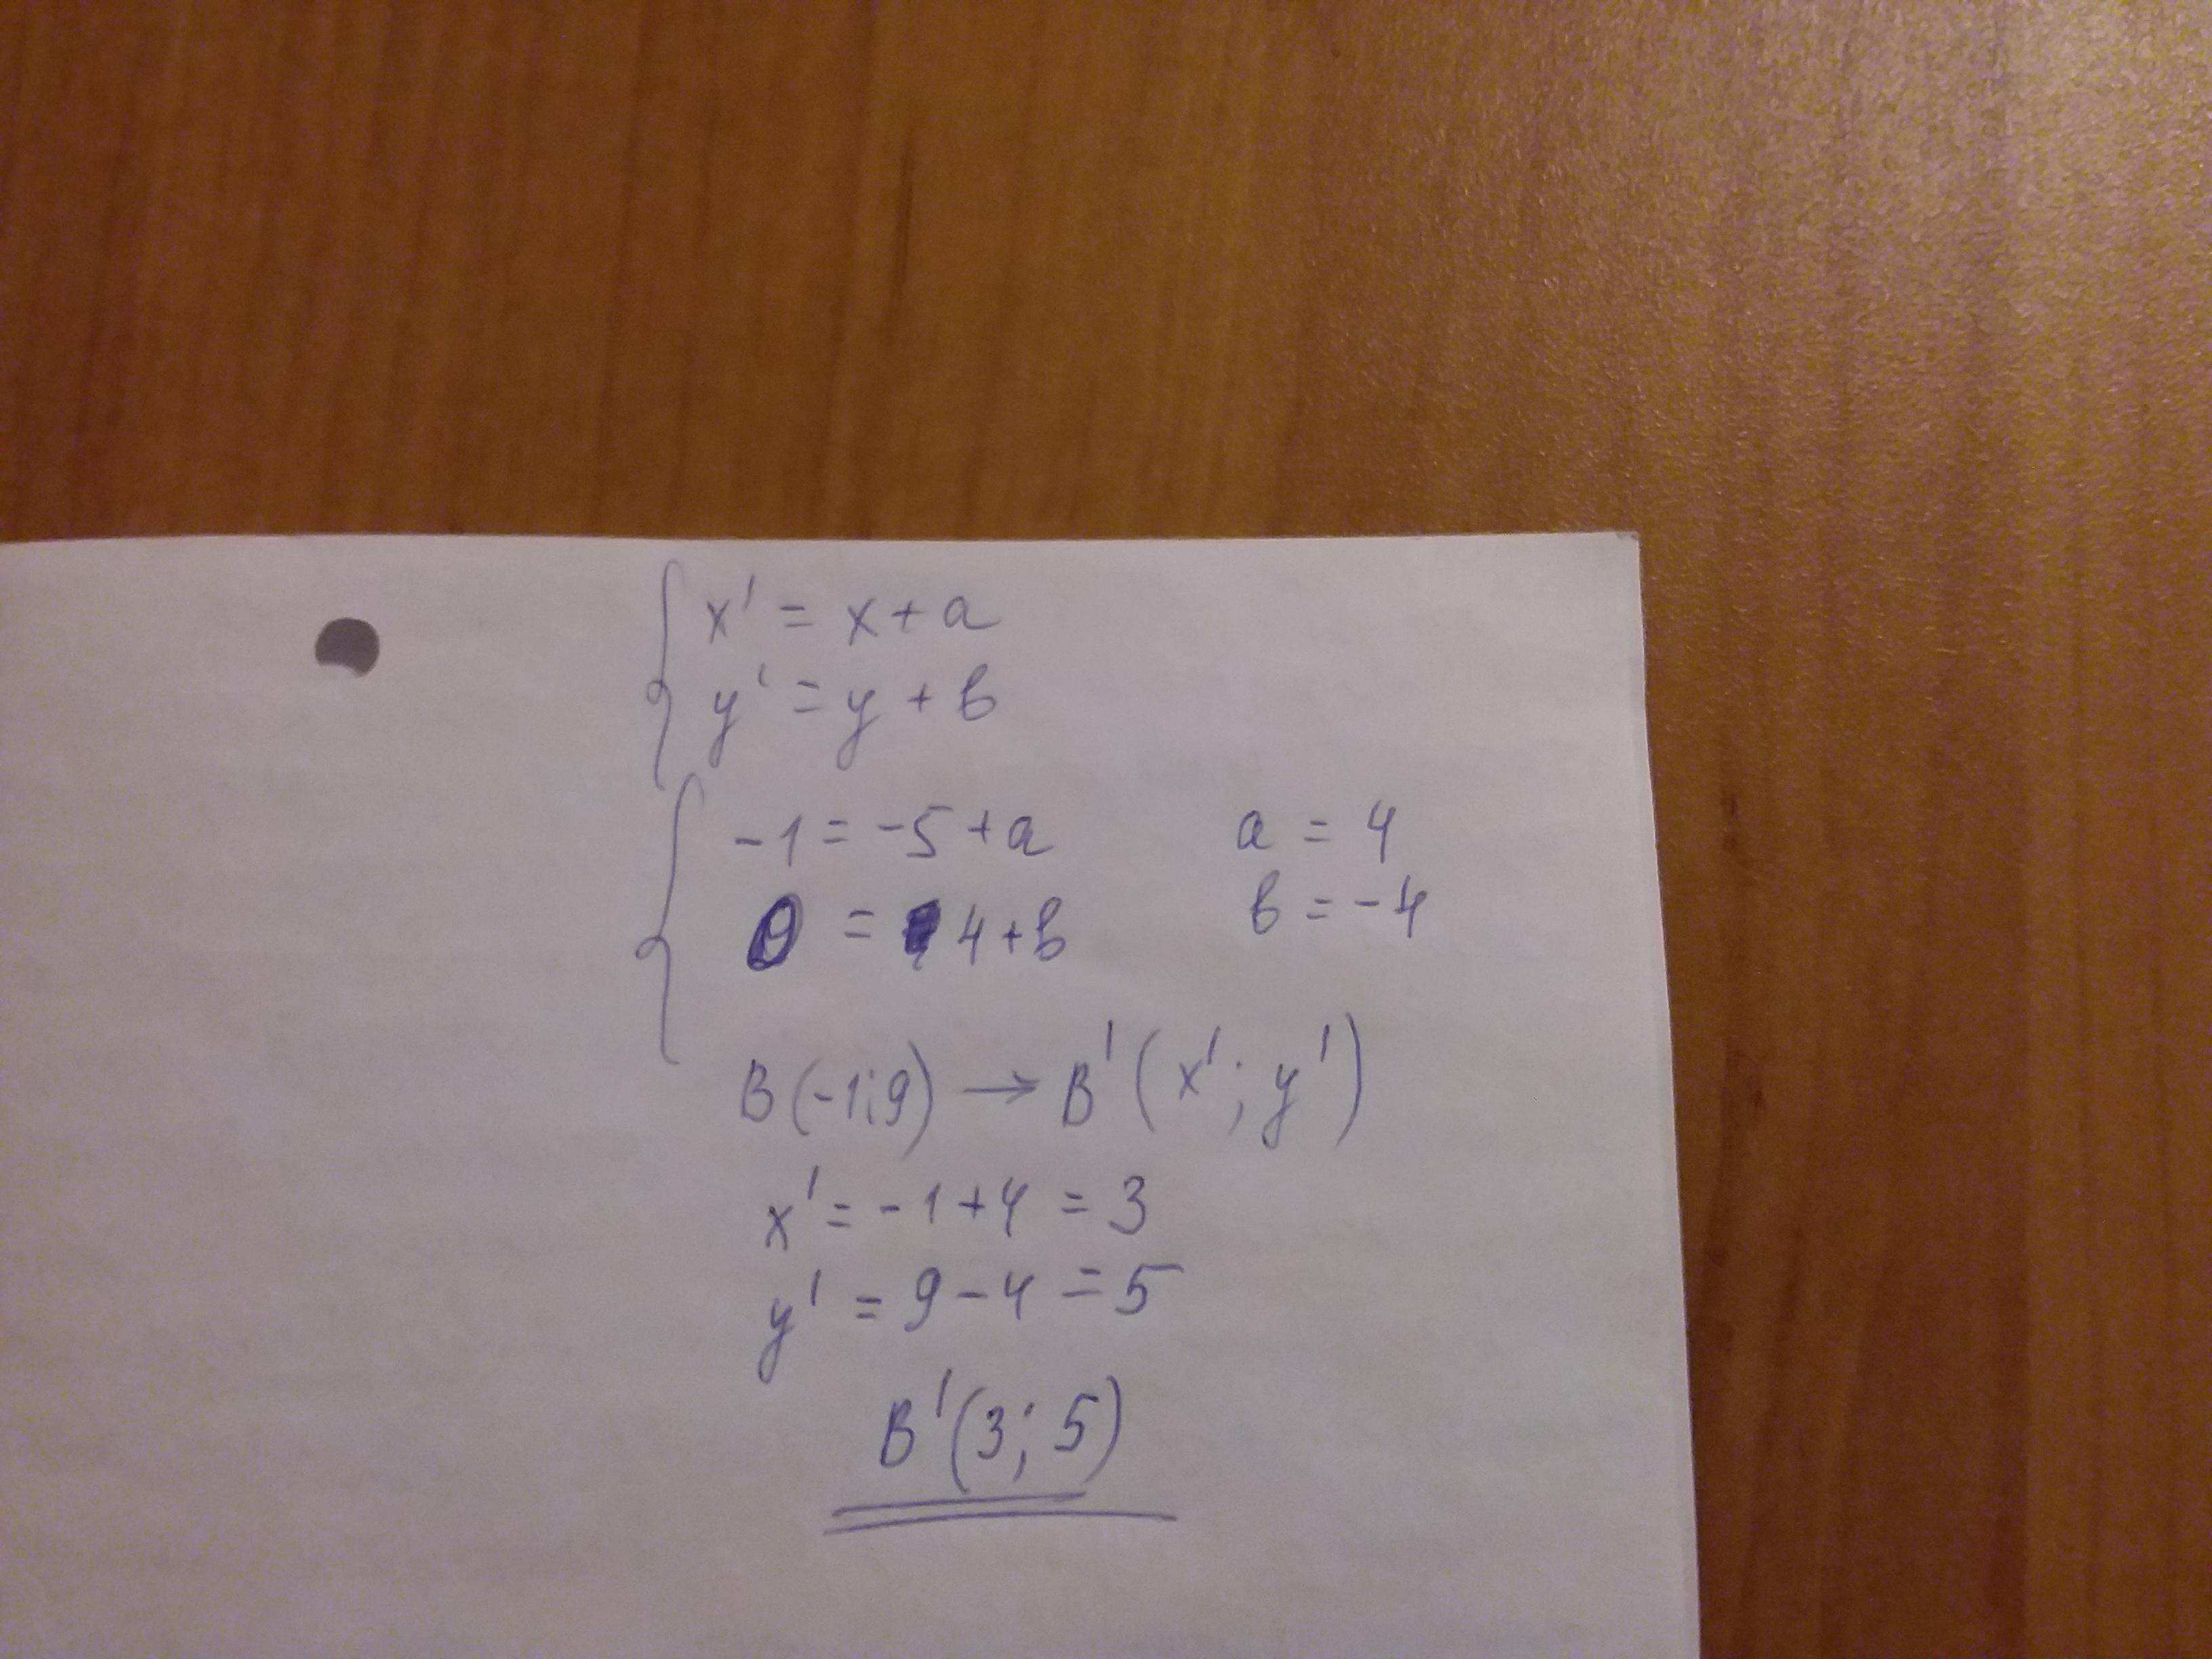 x' = x + a
y' = y + b
-1 = -5 + a a = 4
0 = 4 + b b = -4
B(-1;9) → B'(x'; y')
x' = -1 + 4 = 3
y' = 9 - 4 = 5
B'(3; 5)